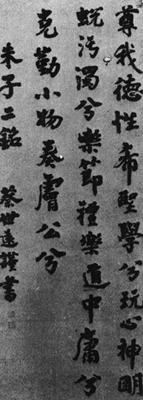 尊我德性希聖學兮玩心神明
蛻污濁兮樂節禮樂道中庸兮
克勤小物奏膚公兮
朱子二銘 蔡世遠謹書